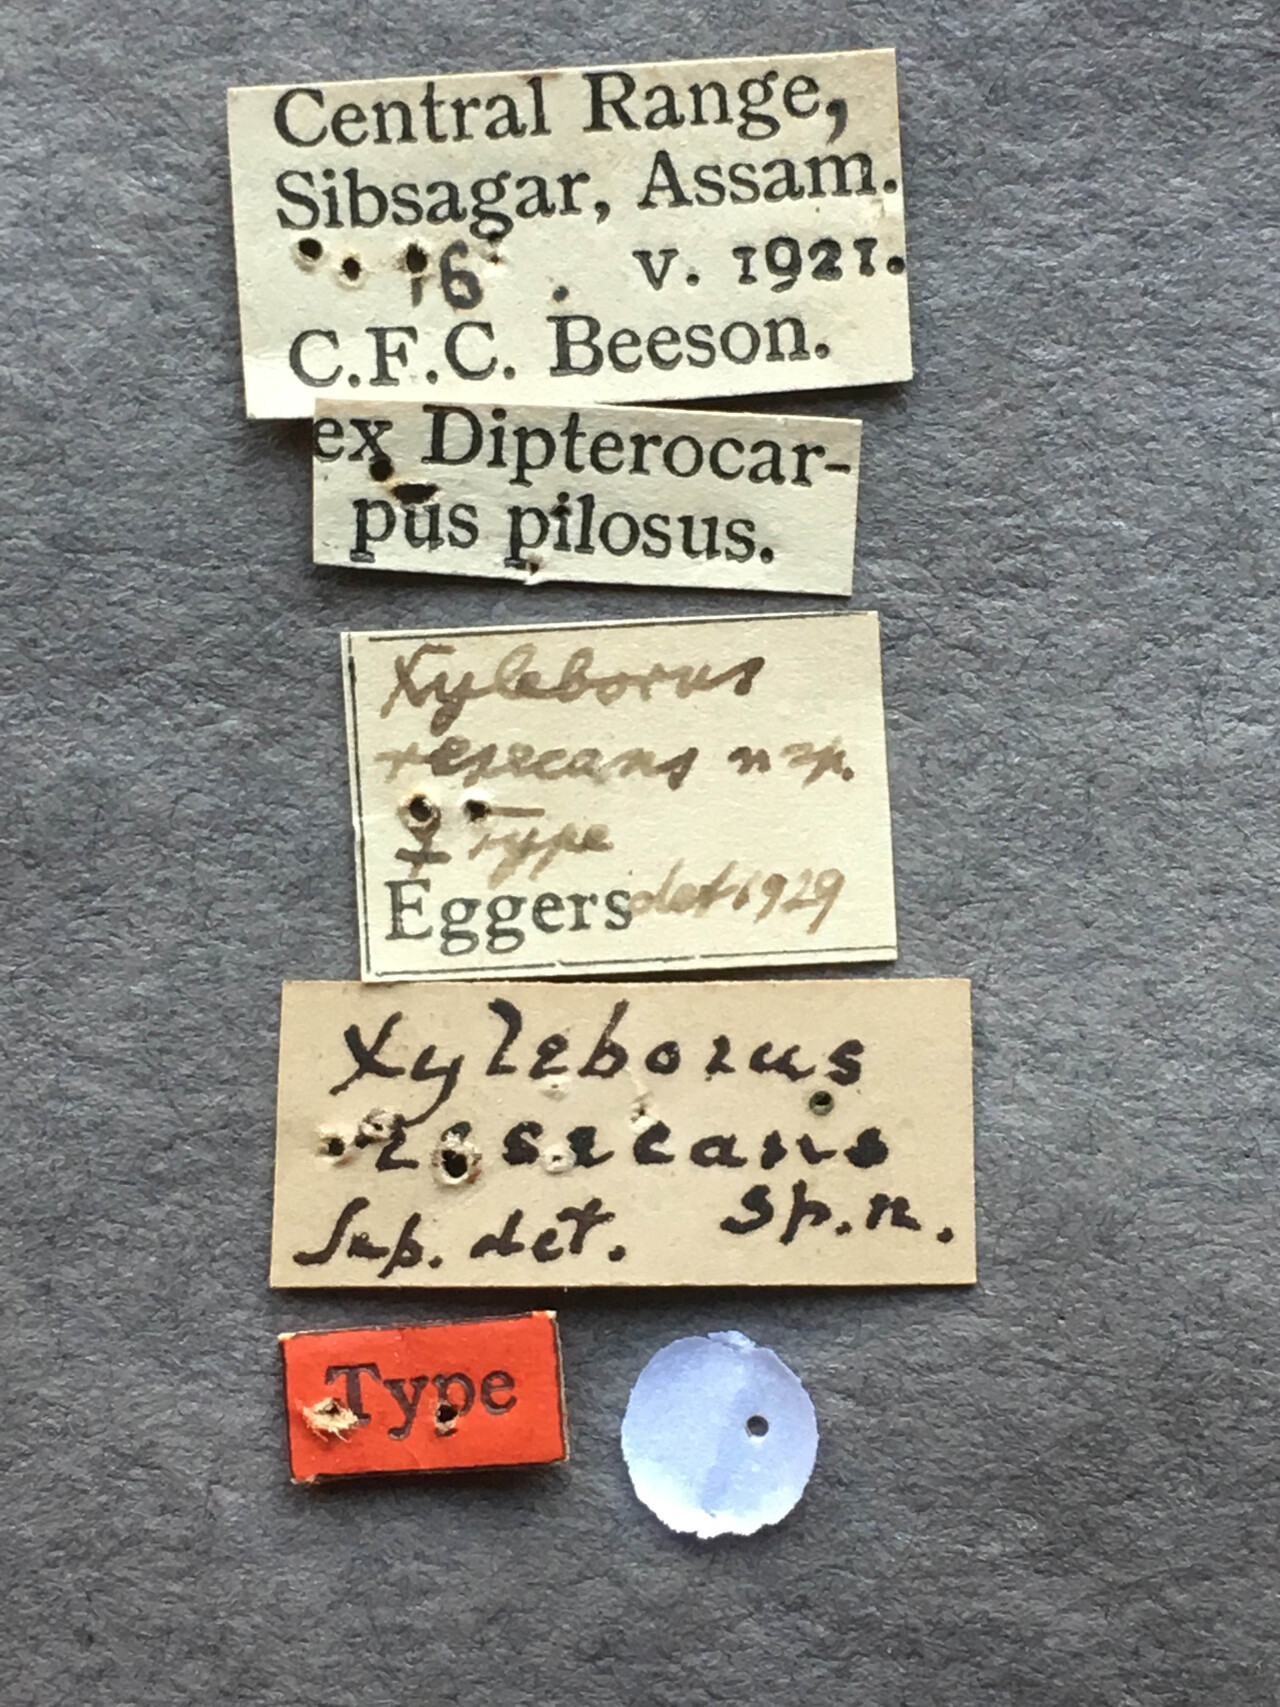 Central Range,
Sibsagar, Assam.
16 . v. 1921.
C.F.C. Beeson.
ex Dipterocar-
pus pilosus.
Xyleborus
resecans n sp.
♀ Type
Eggers det 1929
Xyleborus
resecans
sp. n.
det.
Type